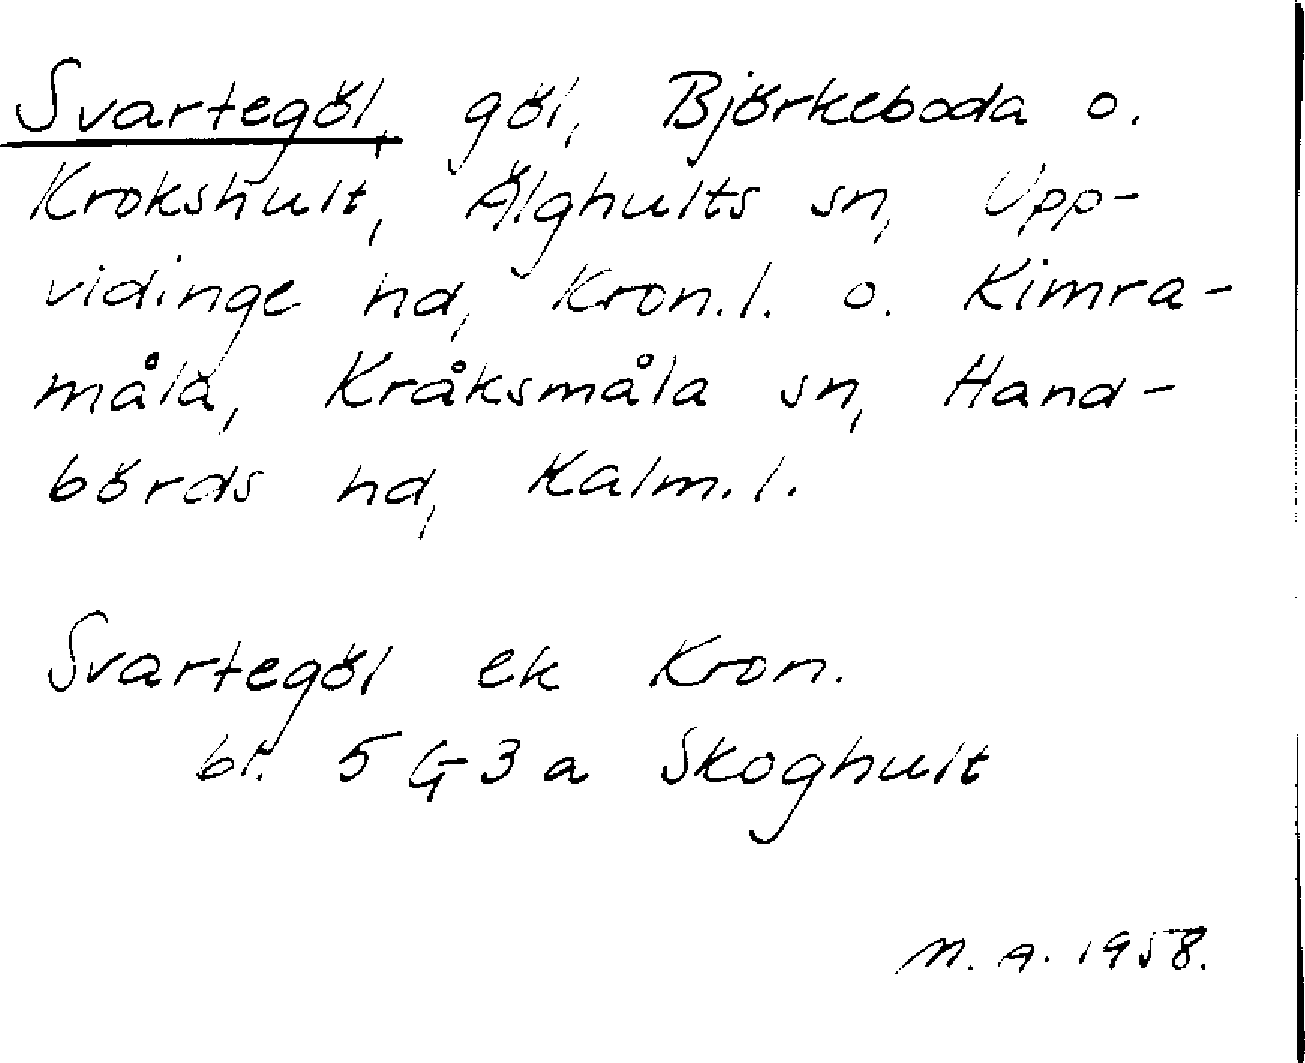 Svartegöl, göl, Björkeboda o.
Krokshult, Älghults sn, Upp-
vidinge hd, Kron.l. o. Kimra-
måla, Kråksmåla sn, Hand-
börds hd, Kalm.l.
Svartegöl ek Kron.
bl. 5G3a Skoghult
M.A. 1958.